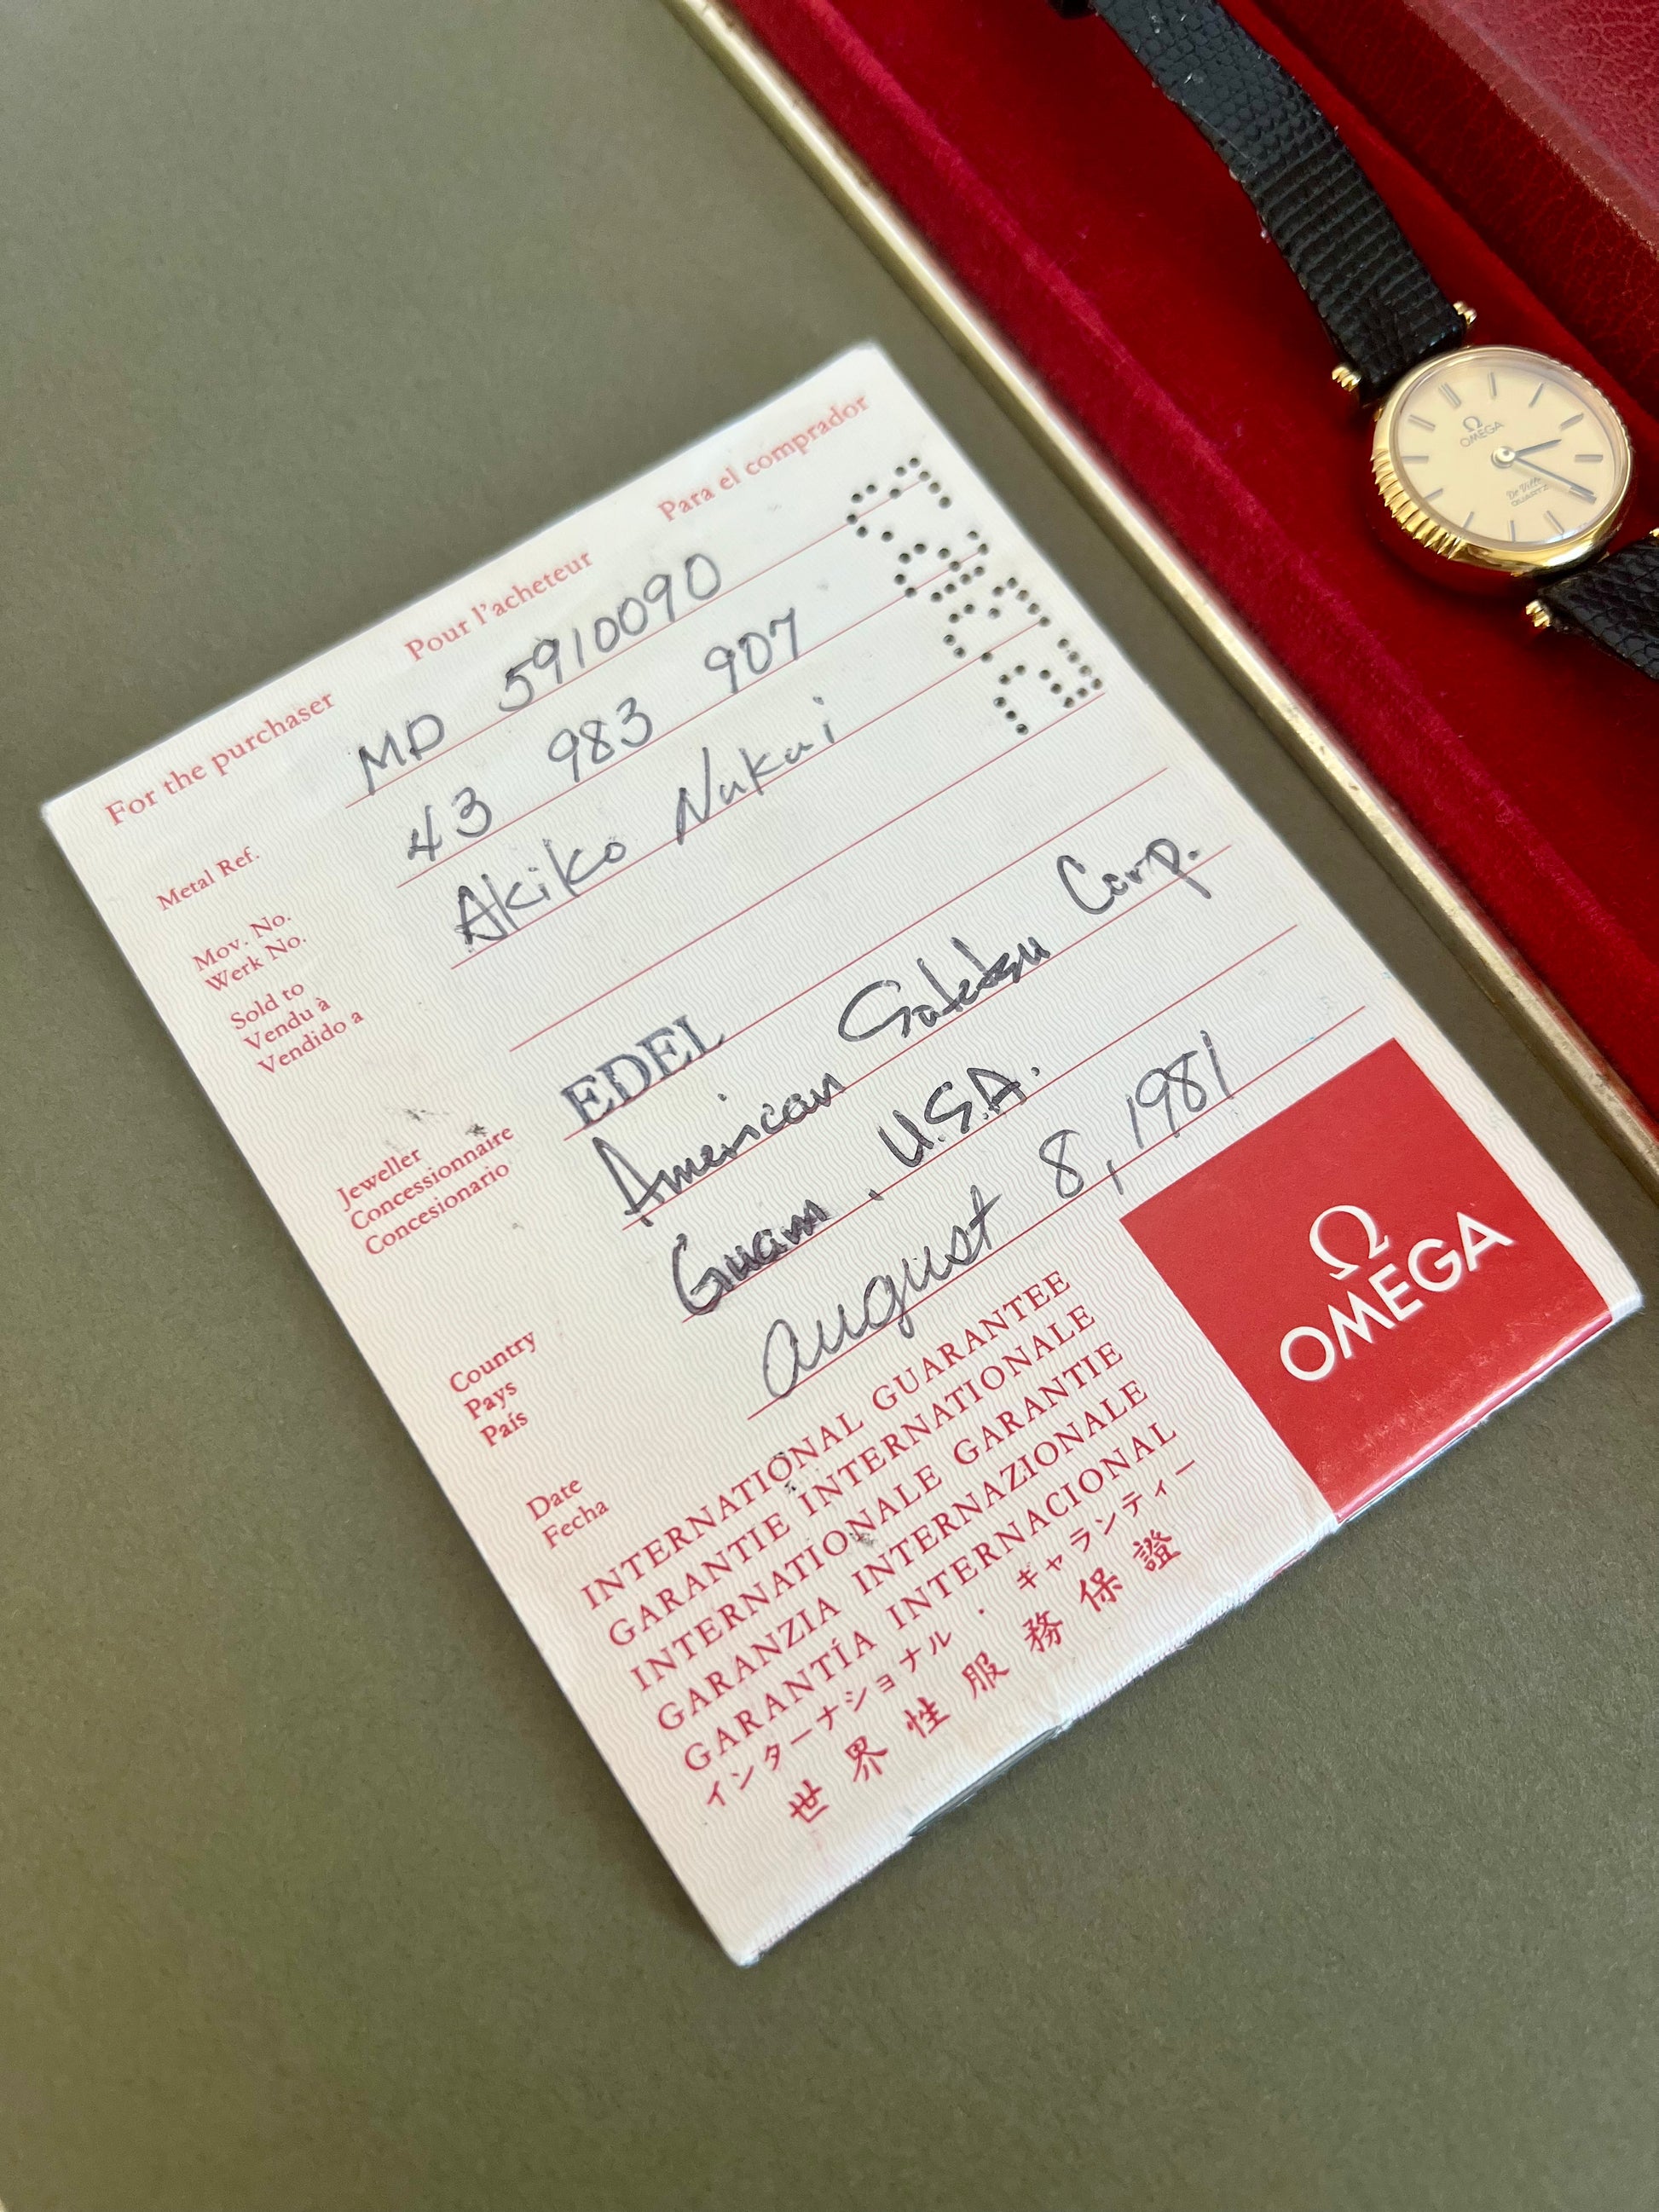 For the purchaser Pour l'acheteur Para el comprador
Metal Ref. MD 5910090
Mov. No. 43 983 907
Werk No.
Sold to Akiko Nukui
Vendu à
Vendido a
Jeweller EDEL
Concessionnaire American Corp.
Concesionario
Country Guam. U.S.A.
Pays
País
Date August 8, 1981
Fecha
INTERNATIONAL GUARANTEE
GARANTIE INTERNATIONALE
INTERNATIONALE GARANTIE
GARANZIA INTERNAZIONALE
GARANTÍA INTERNACIONAL
インターナショナル・ギャランティー
世界性服務保證
Ω
OMEGA
Ω
OMEGA
De Ville
QUARTZ